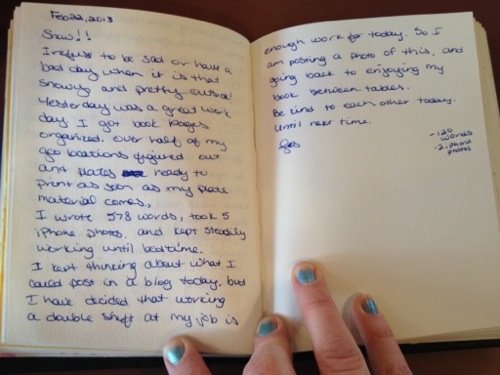 Feb 22, 2013
Snow!!
I refuse to be sad or have a
bad day when it is that
snowy and pretty outside!
Yesterday was a great work
day. I got book pages
organized, over half of my
geo locations figured out
and plates ready to
print as soon as my plate
material comes.
I wrote 578 words, took 5
iPhone photos, and kept steadily
working until bedtime.
I kept thinking about what I
could post in a blog today, but
I have decided that working
a double shift at my job is
enough work for today. So I
am posting a photo of this, and
going back to enjoying my
book between tables.
Be kind to each other today.
Until next time.
-120
words
-2 iphone
photos